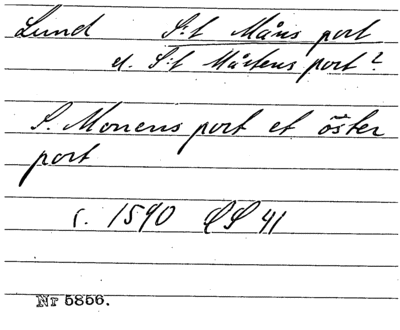 Lund S:t Måns port
el. S:t Mårtens port?
S. Monens port et öster
port
c. 1590 41
Nr 5856.